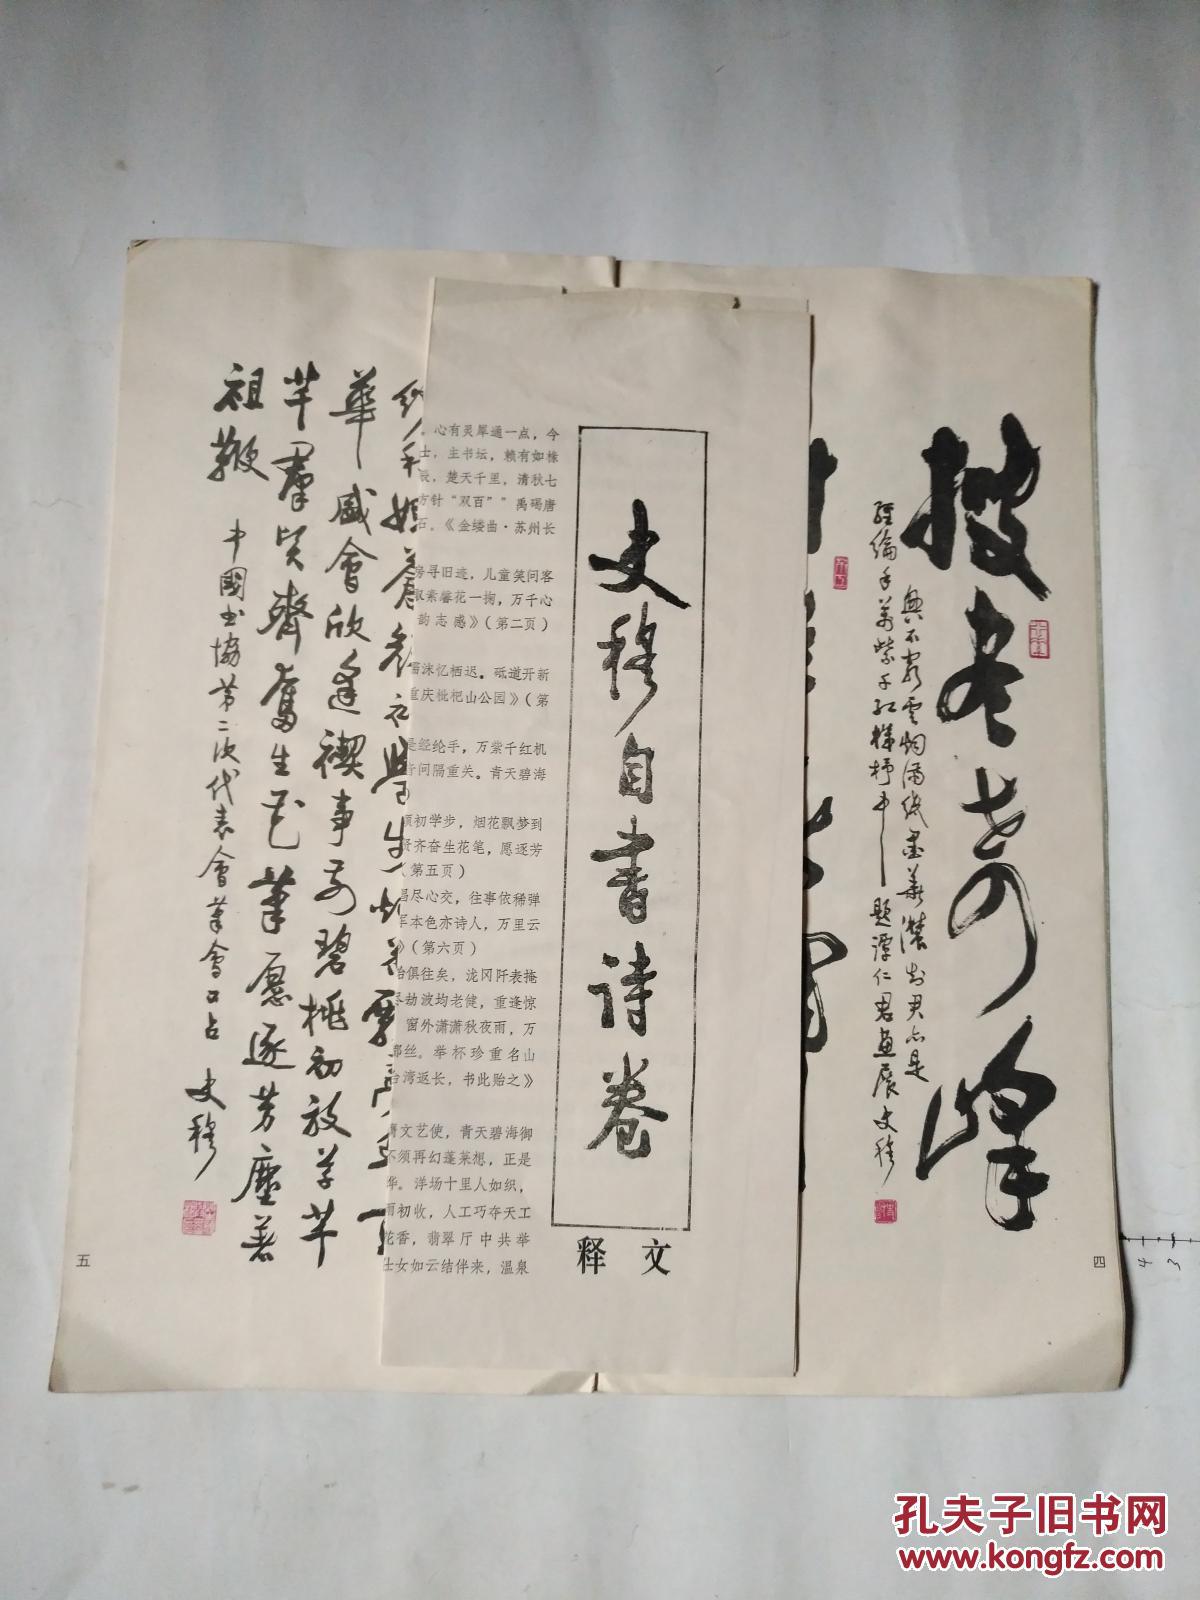 搜尽奇峰
兴不穷云烟满纸墨华浓知君亦是
经纶手万紫千红梯杼中
题谭仁君画展 史穆
四
史穆自书诗卷
释文
。心有灵犀通一点，今
士，主书坛，赖有如椽
辰，楚天千里，清秋七
方针“双百””禹碣唐
石。《金缕曲·苏州长
房寻旧迹，儿童笑问客
馨花一掬，万千心
韵志感》（第二页）
沫忆栖迟。砥道开新
重庆枇杷山公园》（第
是经纶手，万紫千红机
奇问隔重关。青天碧海
颜初学步，烟花飘梦到
贤齐奋生花笔，愿逐芳
（第五页）
尽心交，往事依稀弹
军本色亦诗人，万里云
》（第六页）
台俱往矣，泷冈阡表掩
尽劫波均老健，重逢惊
窗外潇潇秋夜雨，万
都丝。举杯珍重名山
台湾返长，书此贻之》
膺文艺使，青天碧海御
不须再幻蓬莱想，正是
华。洋场十里人如织，
雨初收，人工巧夺天工
花香，翡翠厅中共举
仕女如云结伴来，温泉
華盛會欣逢禊事前碧桃初放草芊
芊羣賢齊奮生花筆愿逐芳塵着
祖鞭
中國書協第二次代表會筆會口占
史穆
五
孔夫子旧书网
www.kongfz.com